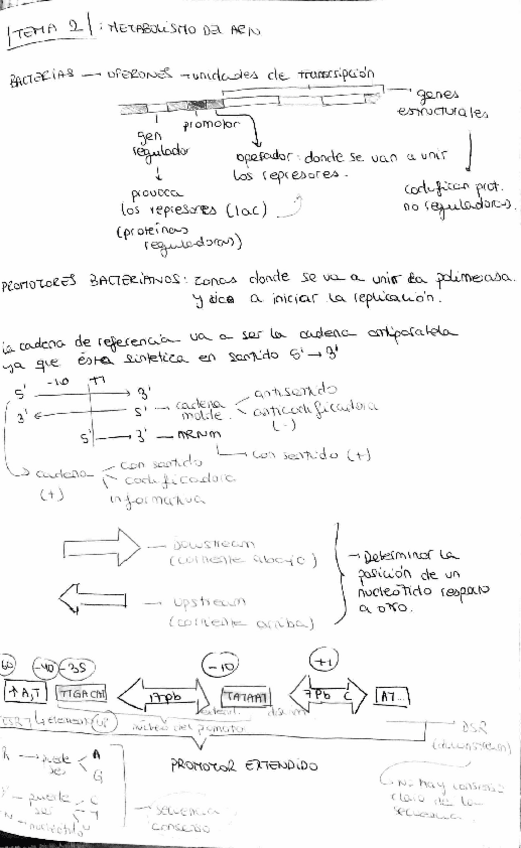 TEMA 2 : METABOLISMO DEL ARN
BACTERIAS → OPERONES → unidades de transcripción
genes
estructurales
promotor
gen
regulador
operador: donde se van a unir
los represores.
codifican prot.
no reguladoras.
provoca
los represores (lac)
(proteínas
reguladoras)
PROMOTORES BACTERIANOS: zonas donde se va a unir la polimerasa.
y a iniciar la replicación.
la cadena de referencia va a ser la cadena antiparalela
ya que ésta sintetica en sentido 5' → 3'
-10 +1
5' → 3'
antisentido
3' ← 5' → cadena
molde
anticodificadora
(-)
5' → 3' → ARNm
con sentido (+)
cadena
(+)
con sentido
codificadora
informativa
Downstream
(corriente abajo)
Upstream
(corriente arriba)
→ Determinar la
posición de un
nucleótido respecto
a otro.
60 -40 -35 -10 +1
↑A,T TTGACAT 17pb TATAAT 7Pb C AT...
núcleo del promotor
DSR
(downstream)
PROMOTOR EXTENDIDO
R → puede
ser
A
G
Y → puede
ser
C
T
N → nucleótido
→ secuencia
consenso
No hay consenso
claro de la
secuencia